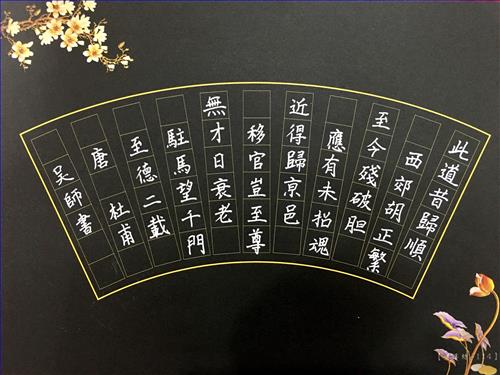 此道昔歸順
西郊胡正繁
至今殘破胆
應有未招魂
近得歸京邑
移官豈至尊
無才日衰老
駐馬望千門
至德二載
唐 杜甫
吴師書